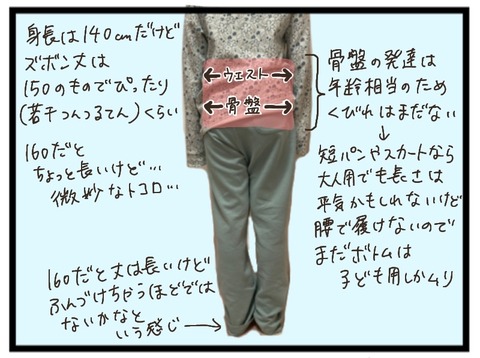 身長は140cmだけど
ズボン丈は
150のものでぴったり
(若干つんつるてん)くらい
160だと
ちょっと長いけど…
微妙なトコロ…
160だと丈は長いけど
ふんづけちゃうほどでは
ないかなと
いう感じ
ウエスト
骨盤
骨盤の発達は
年齢相当のため
くびれはまだない
短パンやスカートなら
大人用でも長さは
平気かもしれないけど
腰で履けないので
まだボトムは
子ども用しかムリ